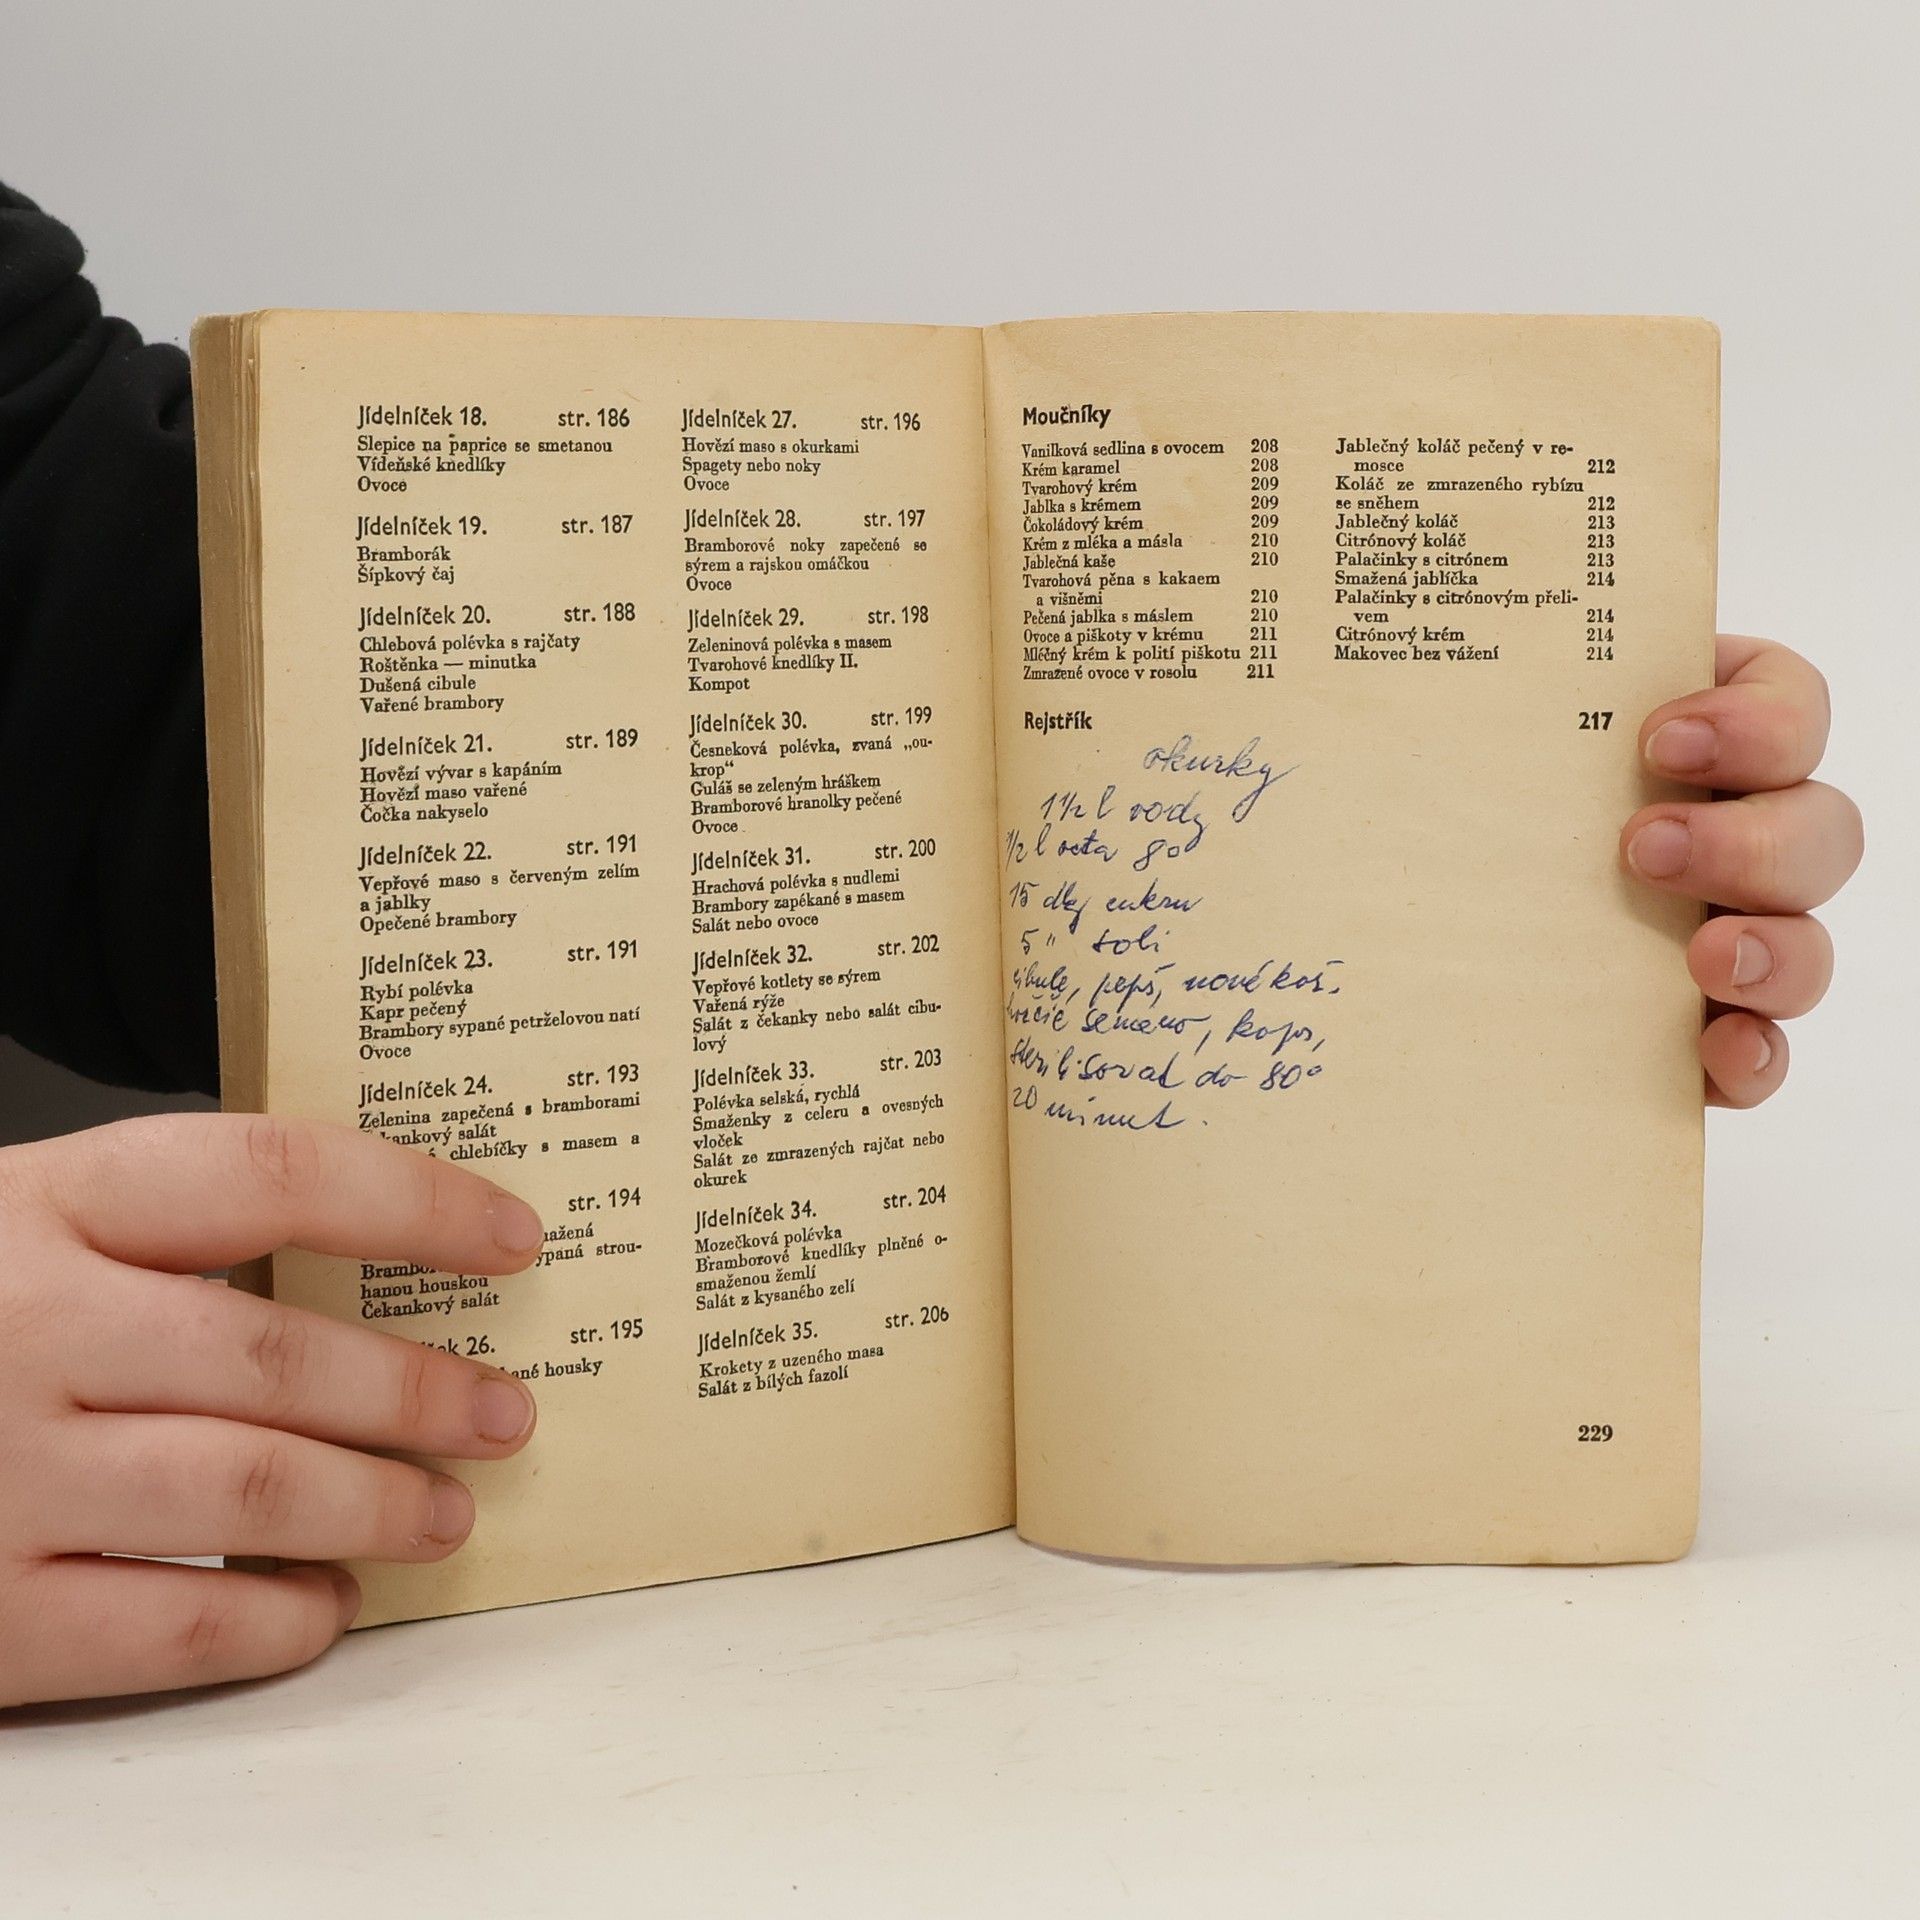 Jídelníček 18. str. 186
Slepice na paprice se smetanou
Vídeňské knedlíky
Ovoce
Jídelníček 19. str. 187
Bramborák
Šípkový čaj
Jídelníček 20. str. 188
Chlebová polévka s rajčaty
Roštěnka — minutka
Dušená cibule
Vařené brambory
Jídelníček 21. str. 189
Hovězí vývar s kapáním
Hovězí maso vařené
Čočka nakyselo
Jídelníček 22. str. 191
Vepřové maso s červeným zelím
a jablky
Opečené brambory
Jídelníček 23. str. 191
Rybí polévka
Kapr pečený
Brambory sypané petrželovou natí
Ovoce
Jídelníček 24. str. 193
Zelenina zapečená s bramborami
salát
chlebíčky s masem a
str. 194
strou-
hanou houskou
Čekankový salát
26. str. 195
housky
Jídelníček 27. str. 196
Hovězí maso s okurkami
Spagety nebo noky
Ovoce
Jídelníček 28. str. 197
Bramborové noky zapečené se
sýrem a rajskou omáčkou
Ovoce
Jídelníček 29. str. 198
Zeleninová polévka s masem
Tvarohové knedlíky II.
Kompot
Jídelníček 30. str. 199
Česneková polévka, zvaná „ou-
krop“
Guláš se zeleným hráškem
Bramborové hranolky pečené
Ovoce
Jídelníček 31. str. 200
Hrachová polévka s nudlemi
Brambory zapékané s masem
Salát nebo ovoce
Jídelníček 32. str. 202
Vepřové kotlety se sýrem
Vařená rýže
Salát z čekanky nebo salát cibu-
lový
Jídelníček 33. str. 203
Polévka selská, rychlá
Smaženky z celeru a ovesných
vloček
Salát ze zmrazených rajčat nebo
okurek
Jídelníček 34. str. 204
Mozečková polévka
Bramborové knedlíky plněné o-
smaženou žemlí
Salát z kysaného zelí
Jídelníček 35. str. 206
Krokety z uzeného masa
Salát z bílých fazolí
Moučníky
Vanilková sedlina s ovocem 208
Krém karamel 208
Tvarohový krém 209
Jablka s krémem 209
Čokoládový krém 209
Krém z mléka a másla 210
Jablečná kaše 210
Tvarohová pěna s kakaem
a višněmi 210
Pečená jablka s máslem 210
Ovoce a piškoty v krému 211
Mléčný krém k polití piškotu 211
Zmražené ovoce v rosolu 211
Jablečný koláč pečený v re-
mosce 212
Koláč ze zmrazeného rybízu
se sněhem 212
Jablečný koláč 213
Citrónový koláč 213
Palačinky s citrónem 213
Smažená jablíčka 214
Palačinky s citrónovým přeli-
vem 214
Citrónový krém 214
Makovec bez vážení 214
Rejstřík 217
okurky
1½ l vody
½ l octa 8°
15 dkg cukru
5 " soli
cibule, pepř, nové koř.
hořčič semeno, kopr,
sterilisovat do 80°
20 minut.
229